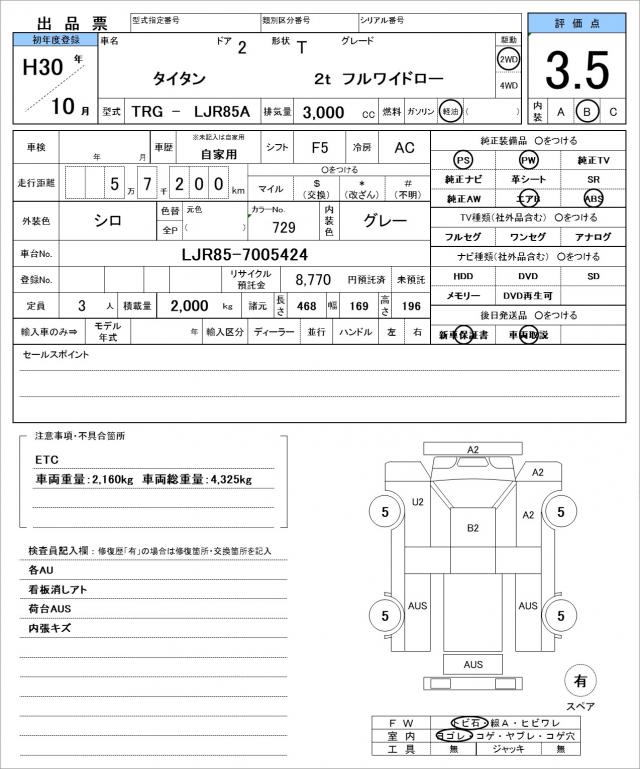 出品票 型式指定番号 類別区分番号 シリアル番号 評価点
初年度登録 車名 ドア 2 形状 T グレード 駆動
H30 年 タイタン 2t フルワイドロー 2WD 3.5
4WD
10 月 型式 TRG - LJR85A 排気量 3,000 cc 燃料 ガソリン 軽油 ( ) 内装 A B C
車検 年 月 車歴 ※未記入は自家用 自家用 シフト F5 冷房 AC 純正装備品 〇をつける
PS PW 純正TV
走行距離 5 万 7 千 2 0 0 km 〇をつける
マイル $ (交換) * (改ざん) # (不明) 純正ナビ 革シート SR
純正AW エアB ABS
外装色 シロ 色替 元色 カラーNo. 内装色 グレー TV種類(社外品含む) 〇をつける
全P ( ) 729 フルセグ ワンセグ アナログ
車台No. LJR85-7005424 ナビ種類(社外品含む) 〇をつける
登録No. リサイクル預託金 8,770 円預託済 未預託 HDD DVD SD
メモリー DVD再生可
定員 3 人 積載量 2,000 kg 諸元 長さ 468 幅 169 高さ 196 後日発送品 〇をつける
輸入車のみ⇒ モデル年式 年 輸入区分 ディーラー 並行 ハンドル 左 右 新車保証書 車両取説
セールスポイント
注意事項・不具合箇所
ETC
車両重量:2,160kg 車両総重量:4,325kg
検査員記入欄:修復歴「有」の場合は修復箇所・交換箇所を記入
各AU
看板消しアト
荷台AUS
内張キズ
A2
A2
U2
5 A2 5
B2
AUS AUS
5 5
AUS
有
スペア
FW トビ石・線A・ヒビワレ
室内 ヨゴレ・コゲ・ヤブレ・コゲ穴
工具 無 ジャッキ 無